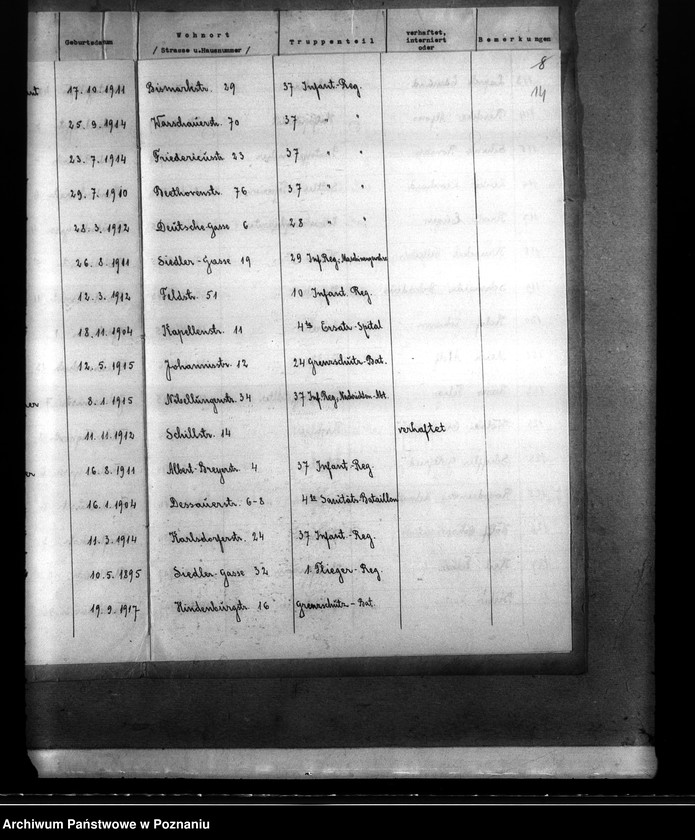 Geburtsdatum Wohnort /Strasse u.Hausnummer/ Truppenteil verhaftet, interniert oder Bemerkungen
8
14
17.10.1911 Bismarkstr. 29 37 Infant-Reg.
25.9.1914 Warschauerstr. 70 37 " "
23.7.1914 Friedericusstr. 23 37 " "
29.7.1910 Beethovenstr. 76 37 " "
28.3.1912 Deutsche-Gasse 6 28 " "
26.8.1911 Siedler-Gasse 19 29 Inf.Reg.
12.3.1912 Feldstr. 51 10 Infant. Reg.
18.11.1904 Kapellenstr. 11 4te Ersatz-Spital
12.5.1915 Johannisstr. 12 24 Grenzschütz-Bat.
8.1.1915 Nibellüngenstr. 34 37 Inf.Reg. Nachrichten-Abt.
11.11.1912 Schillstr. 14 verhaftet
16.8.1911 Albert-Breyerstr. 4 37 Infant-Reg.
16.1.1904 Dessauerstr. 6-8 4te Sanitäts-Bataillon
11.3.1914 Karlsdorferstr. 24 37 Infant-Reg.
10.5.1895 Siedler-Gasse 32 1. Flieger-Reg.
19.9.1917 Hindenbürgstr. 16 Grenzschütz-Bat.
Archiwum Państwowe w Poznaniu